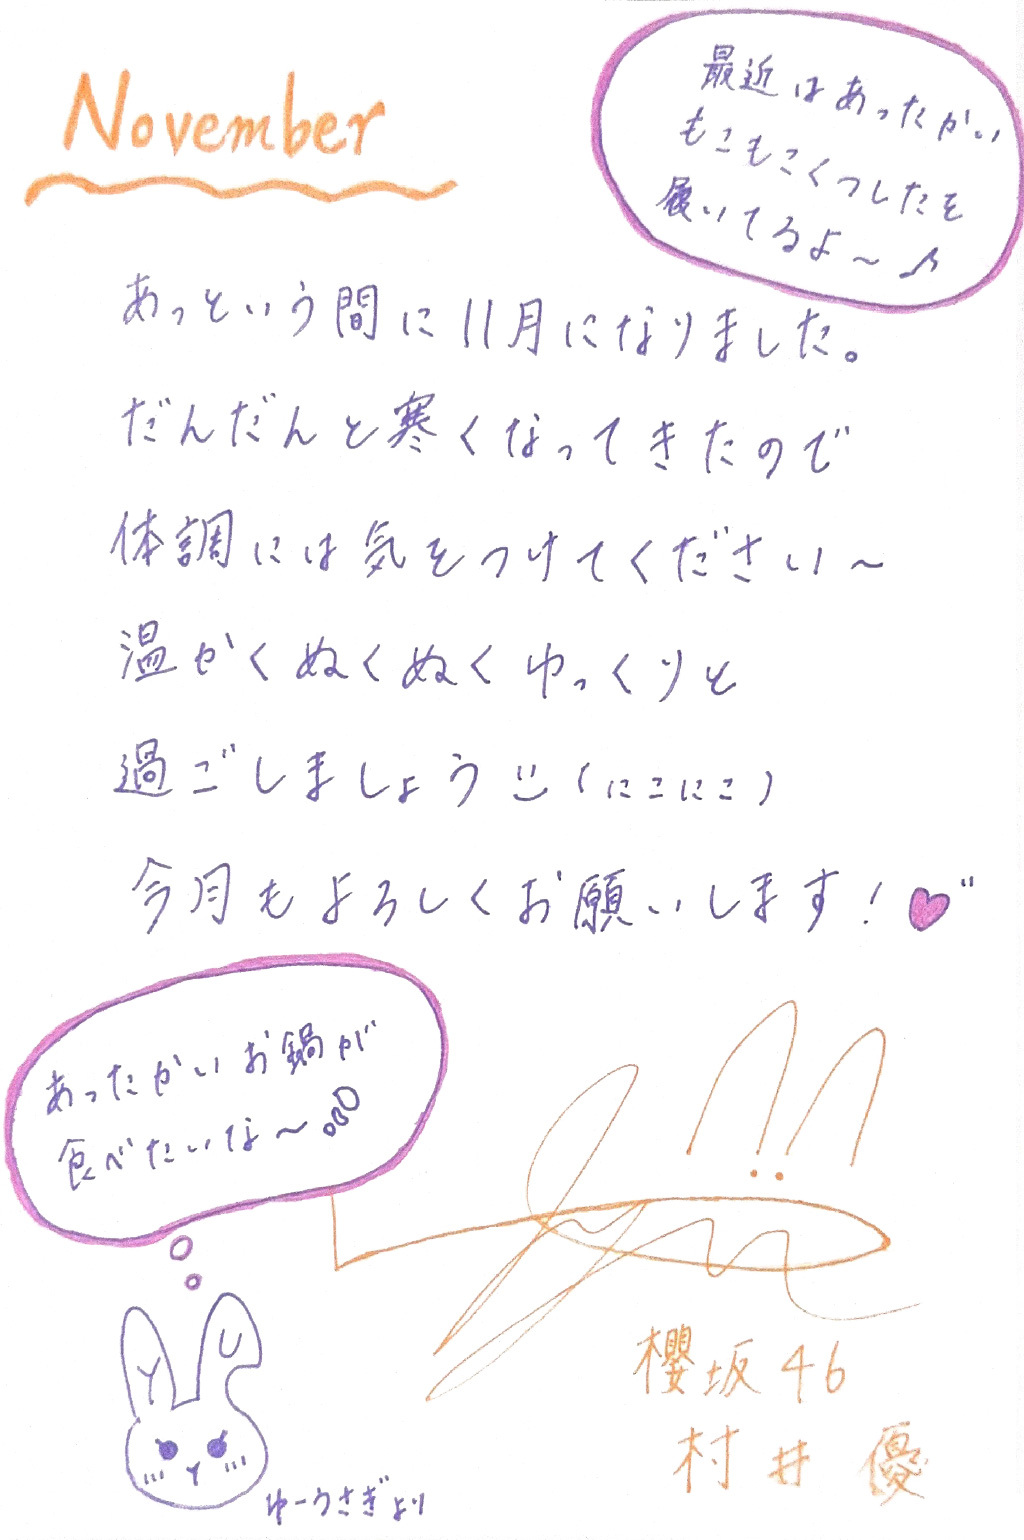 November
最近はあったかい
もこもこくつしたを
履いてるよ～♪
あっという間に11月になりました。
だんだんと寒くなってきたので
体調には気をつけてください～
温かくぬくぬくゆっくりと
過ごしましょう(にこにこ)
今月もよろしくお願いします！
あったかいお鍋が
食べたいな～
Y U
ゆーうさぎより
櫻坂46
村井 優